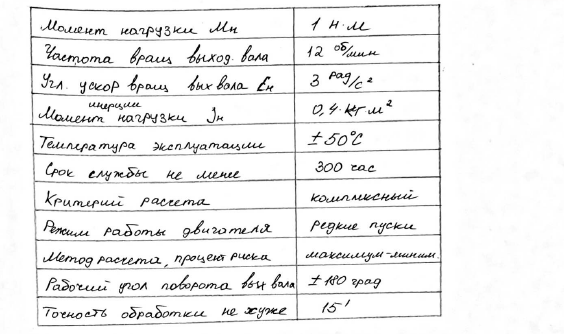 Момент нагрузки Мн 1 Н·м
Частота вращ выход. вала 12 об/мин
Угл. ускор вращ вых вала Ɛн 3 рад/с²
инерции
Момент нагрузки Jн 0,4·кг·м²
Температура эксплуатации ±50°С
Срок службы не менее 300 час
Критерий расчета комплексный
Режим работы двигателя редкие пуски
Метод расчета, процент риска максимум-миним.
Рабочий угол поворота вых вала ±180 град
Точность обработки не хуже 15'